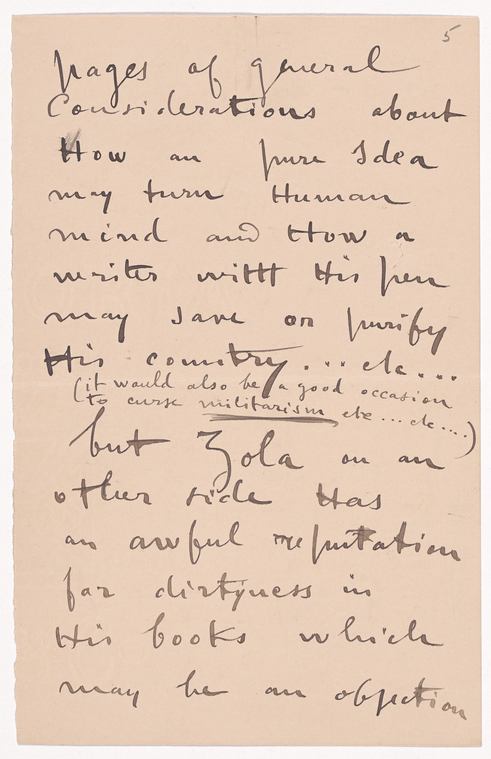 5
pages of general
Considerations about
How an pure Idea
may turn Human
mind and How a
writer witH His pen
may save or purify
His country... etc...
(it would also be a good occasion
to curse militarism etc... etc....)
but Zola on an
other side Has
an awful reputation
for dirtyness in
His books which
may be an objection